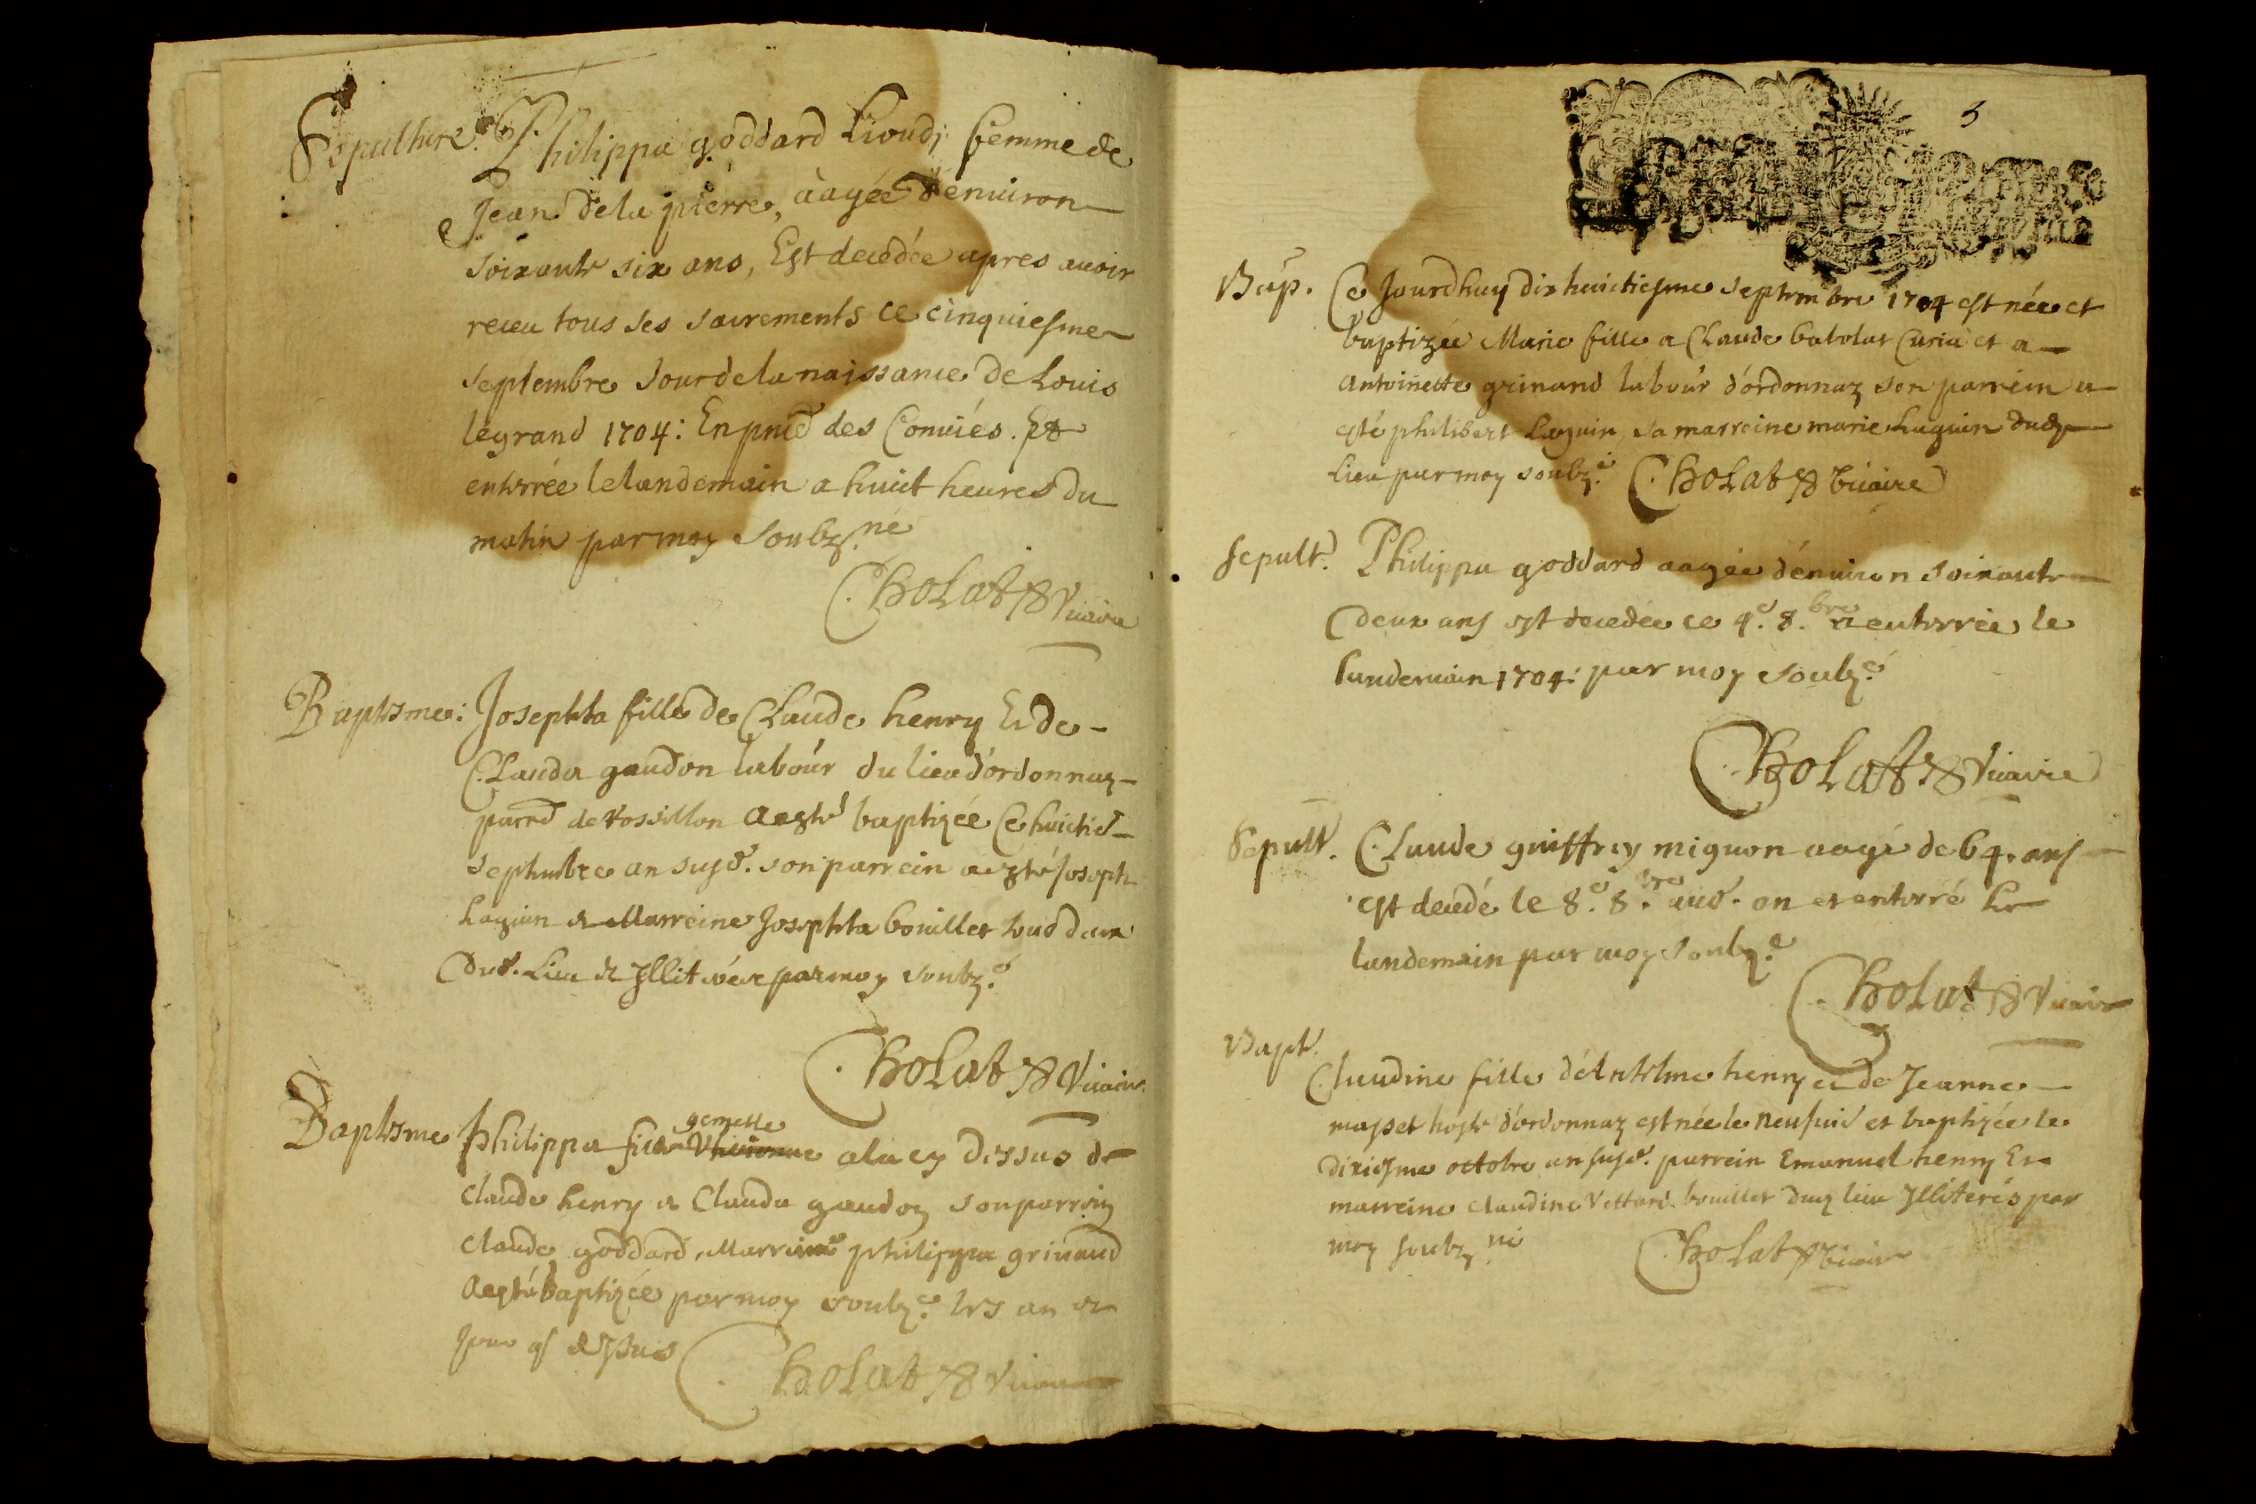 Sepulture. Philippa goddard Lioud; femme de
Jean de la pierre, aagée d'enuiron
soixante six ans, Est decedée apres auoir
receu tous ses sacrements ce cinquiesme
septembre Jour de la naissance de Louis
le grand 1704: En pnce des Conuiés. Et
enterrée le landemain a huict heures du
matin par moy soubz.né
Cholat Vicaire
Baptesme: Josephta fille de Claude henry Et de
Clauda gaudon labour du lieu d'ordonnaz
parr. de Rossillon a esté baptizée Ce huictie
septembre an susd. son parrein a esté Joseph
Laguin et Marreine Josephta bouillet
dud. Lieu et Illiterés par moy soubz.é
Cholat Vicaire
Baptesme Philippa fille gemelle a la cy dessus de
Claude henry et Clauda gaudon son parrein
Claude goddard Marreine philippa grinand
a esté baptizée par moy soubz.é les an et
Jour q dessus
Cholat Vicaire
5
Bap. Ce Jourdhuy dix huictiesme septembre 1704 est née et
baptizée Marie fille a Claude Curia et a
Antoinette grinand labour d'ordonnaz son parrein a
esté philibert Laguin, sa marreine marie Laguin dud
Lieu par moy soubz.é Cholat Vicaire
Sepult. Philippa goddard aagée d'enuiron soixante
deux ans est decedée ce 4.e 8.bre et enterrée le
landemain 1704: par moy soubz.é
Cholat Vicaire
Sepult. Claude guiffrey mignon aagé de 64. ans
est decedé le 8.e 8.bre aud. an et enterré le
landemain par moy soubz.é
Cholat Vicaire
Bapt.
Claudine fille d'Antelme henry et de Jeanne
masset hoste d'ordonnaz est née le neufuie et baptizée le
dixiesme octobre an susd. parrein Emanuel henry Et
marreine Claudine Vettard bouillet dud lieu Illiterés par
moy soubz.né Cholat Vicaire